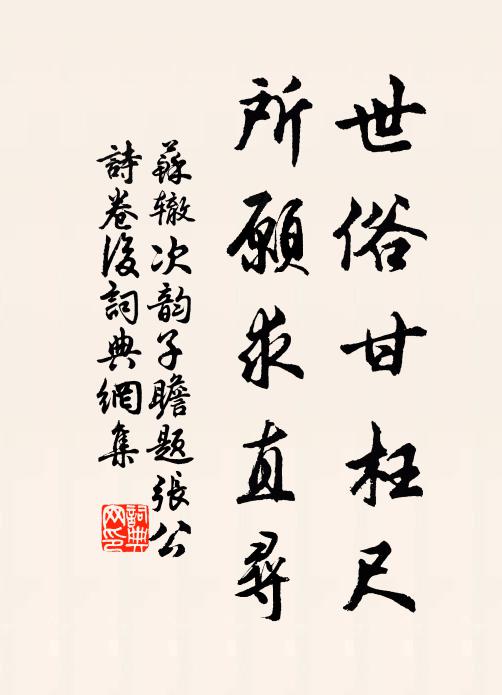 世俗甘枉尺
所願求直尋
蘇辙次韵子瞻題張公
詩卷後詞典網集
詞典
网印